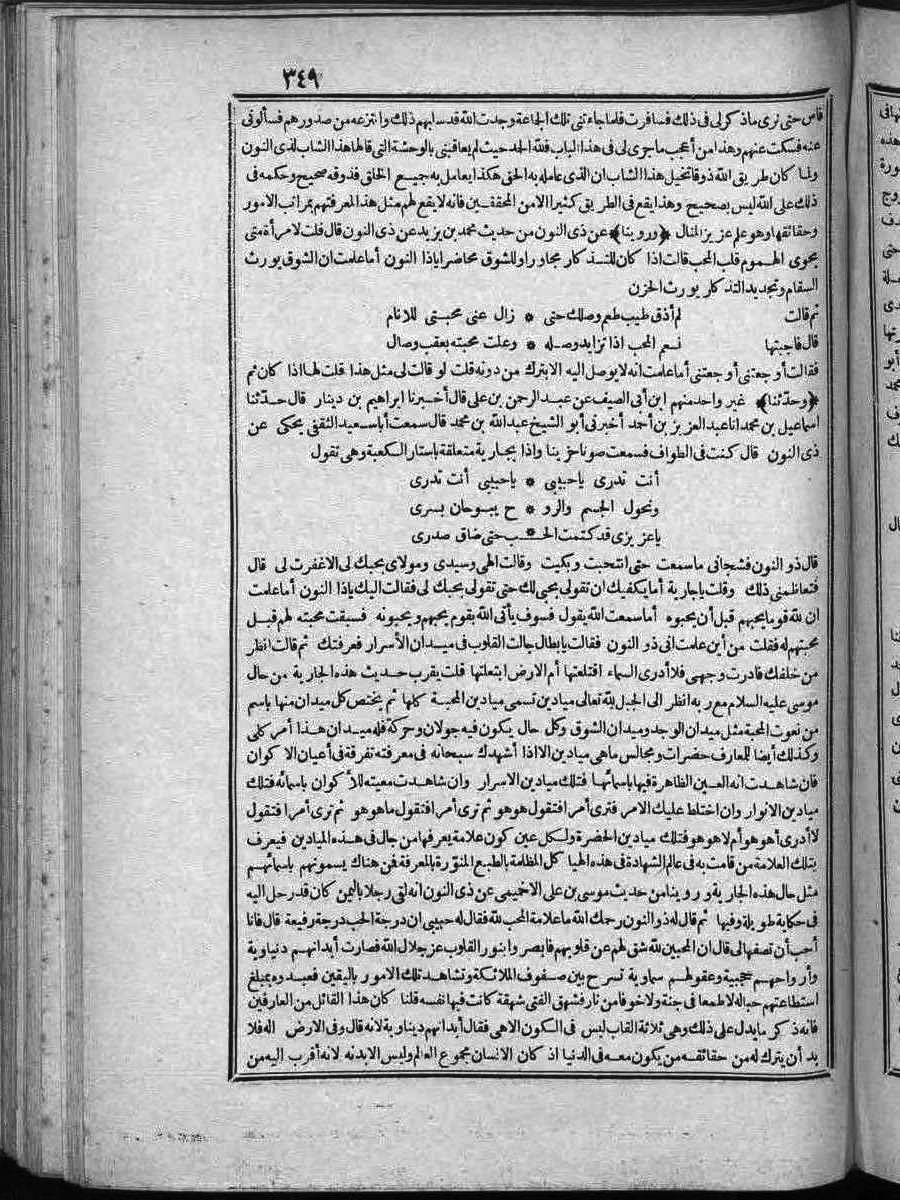 ٣٤٩
فاس حتى نرى ماذكر لى فى ذلك فسافرت فلما جاءتنى تلك الجاعة وجدت الله قد سلبهم ذلك وانتزعه من صدورهم فسألونى
عنه فسكت عنهم وهذا من أعجب ماجرى لى فى هذا الباب فلله الحمد حيث لم يعاقبنى بالوحشة التى قالها هذا الشاب لذى النون
ولما كان طريق الله ذوقا تخيل هذا الشاب ان الذى عامله به الحق هكذا يعامل به جميع الخلق فذوقه صحيح وحكمه فى
ذلك على الله ليس بصحيح وهذا يقع فى الطريق كثيرا الامن المحققين فانه لا يقع لهم مثل هذا لمعرفتهم بمراتب الامور
وحقائقها وهو علم عزيز المنال ﴿وروينا﴾ عن ذى النون من حديث محمد بن يزيد عن ذى النون قال قلت لامرأة متى
يحوى الهموم قلب المحب قالت اذا كان للتذكار مجاورا وللشوق محاضرا ياذا النون أما علمت ان الشوق يورث
السقام وتجديد التذكار يورث الحزن
ثم قالت لم أذق طيب طعم وصلك حتى * زال عنى محبتى للانام
قال فاجبتها نعم المحب اذا تزايد وصله * وعلت محبته بعقب وصال
فقالت أوجعتنى أوجعتنى أما علمت انه لا يوصل اليه الابترك من دونه قلت لو قالت لى مثل هذا قلت لها اذا كان ثم
﴿وحدّثنا﴾ غير واحد منهم ابن أبى الصيف عن عبد الرحمن بن على قال أخبرنا ابراهيم بن دينار قال حدّثنا
اسماعيل بن محمد انا عبد العزيز بن أحمد أخبرنى أبو الشيخ عبد الله بن محمد قال سمعت أبا سعيد الثقفى يحكى عن
ذى النون قال كنت فى الطواف فسمعت صوتا حزينا واذا بجارية متعلقة باستار الكعبة وهى تقول
أنت تدرى ياحبيبى * ياحبيبى أنت تدرى
ونحول الجسم والرو * ح يبوحان بسرى
ياعزيزى قد كتمت الحـ * ـب حتى ضاق صدرى
قال ذو النون فشجانى ماسمعت حتى انتحبت وبكيت وقالت الهى وسيدى ومولاى بحبك لى الاغفرت لى قال
فتعاظمنى ذلك وقلت ياجارية أما يكفيك ان تقولى بحبى لك حتى تقولى بحبك لى فقالت اليك ياذا النون أما علمت
ان لله قوما يحبهم قبل أن يحبوه أما سمعت الله يقول فسوف يأتى الله بقوم يحبهم ويحبونه فسبقت محبته لهم قبل
محبتهم له فقلت من أين علمت انى ذو النون فقالت يابطال جالت القلوب فى ميدان الأسرار فعرفتك ثم قالت انظر
من خلفك فادرت وجهى فلا أدرى السماء اقتلعتها أم الارض ابتلعتها قلت يقرب حديث هذه الجارية من حال
موسى عليه السلام مع ربه انظر الى الجبل لله تعالى ميادين تسمى ميادين المحبة كلها ثم يختص كل ميدان منها باسم
من نعوت المحبة مثل ميدان الوجد وميدان الشوق وكل حال يكون فيه جولان وحركة فله ميدان هذا أمر كلى
وكذلك أيضا للمعارف حضرات ومجالس ماهى ميادين الا اذا أشهدك سبحانه فى معرفته تفرقة فى أعيان الاكوان
فان شاهدت انه العين الظاهرة فيها باسمائها فتلك ميادين الاسرار وان شاهدت معيته للأكوان باسمائه فتلك
ميادين الانوار وان اختلط عليك الامر فترى أمرا فتقول هو هو ثم ترى أمرا فتقول ماهو هو ثم ترى أمرا فتقول
لا أدرى أهو هو أم لا هو هو فتلك ميادين الحضرة ولكل عين كون علامة يعرفها من جال فى هذه الميادين فيعرف
بتلك العلامة من قامت به فى عالم الشهادة فى هذه الهياكل المظلمة بالطبع المنوّرة بالمعرفة فمن هناك يسمونهم باسمائهم
مثل حال هذه الجارية وروينا من حديث موسى بن على الاخيمى عن ذى النون انه لقى رجلا باليمن كان قد رحل اليه
فى حكاية طويلة وفيها ثم قال له ذو النون رحمك الله ما علامة المحب لله فقال له حبيبى ان درجة الحب درجة رفيعة قال فانا
أحب أن تصفها لى قال ان المحبين لله شق لهم عن قلوبهم فابصروا بنور القلوب عز جلال الله فصارت أبدانهم دنياوية
وأرواحهم حجبية وعقولهم سماوية تسرح بين صفوف الملائكة وتشاهد تلك الامور باليقين فعبدوه بمبلغ
استطاعتهم حباله لا طمعا فى جنة ولا خوفا من نار فشهق الفتى شهقة كانت فيها نفسه قلنا كان هذا القائل من العارفين
فانه ذكر مايدل على ذلك وهى ثلاثة القاب ليس فى الكون الاهى فقال أبدانهم دنياوية لانه قال وفى الارض اله فلا
بد أن يترك له من حقائقه من يكون معه فى الدنيا اذ كان الانسان مجموع العالم وليس الابدنه لانه أقرب اليه من